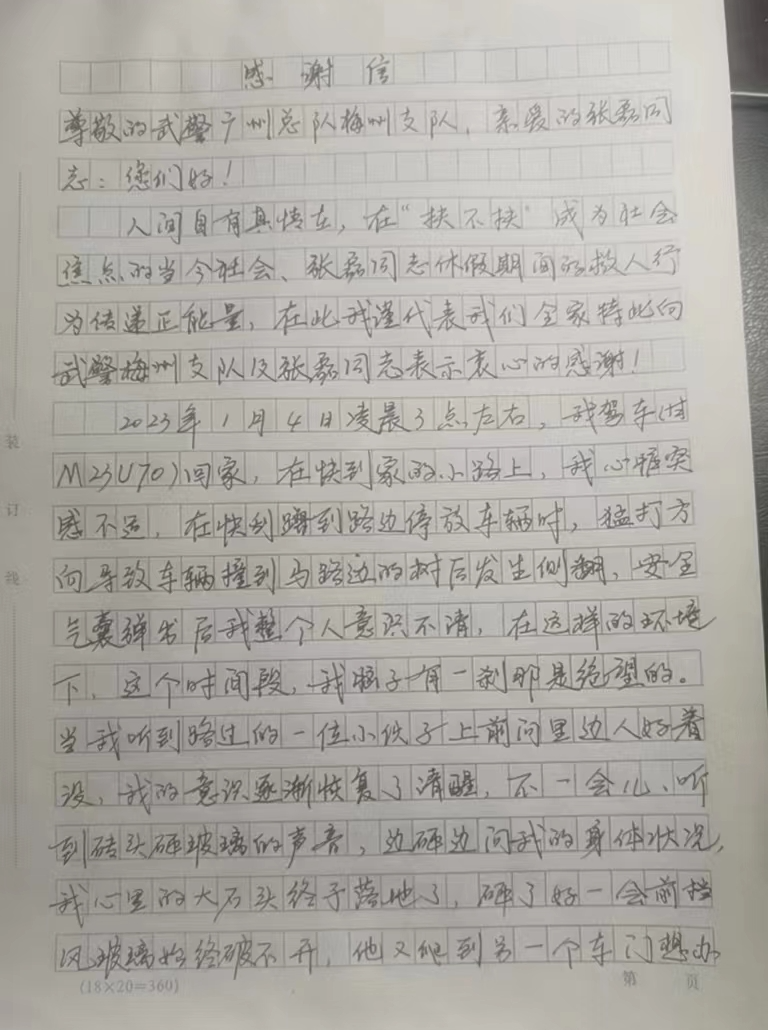 感谢信
尊敬的武警广州总队梅州支队，亲爱的张磊同
志：您们好！
人间自有真情在，在“扶不扶”成为社会
焦点的当今社会、张磊同志休假期间的救人行
为传递正能量，在此我谨代表我们全家特此向
武警梅州支队及张磊同志表示衷心的感谢！
2023年1月4日凌晨3点左右，我驾车(甘
M23U70)回家，在快到家的小路上，我心脏突
感不适，在快到蹭到路边停放车辆时，猛打方
向导致车辆撞到马路边的树后发生侧翻，安全
气囊弹出后我整个人意识不清，在这样的环境
下，这个时间段，我脑子有一刹那是绝望的。
当我听到路过的一位小伙子上前问里边人好着
没，我的意识逐渐恢复了清醒，不一会儿、听
到砖头砸玻璃的声音，边砸边问我的身体状况，
我心里的大石头终于落地了，砸了好一会前挡
风玻璃始终破不开，他又爬到另一个车门想办
(18×20=360)
第 页
装
订
线